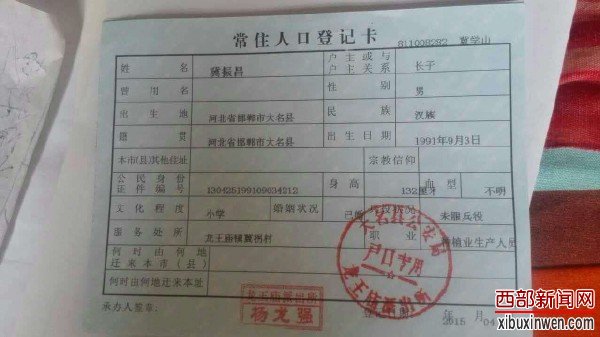 常住人口登记卡 811009282 冀学山
姓名 冀振昌 户主或与户主关系 长子
曾用名 性别 男
出生地 河北省邯郸市大名县 民族 汉族
籍贯 河北省邯郸市大名县 出生日期 1991年9月3日
本市(县)其他住址 宗教信仰
公民身份证件编号 130425199109034212 身高 132厘米 血型 不明
文化程度 小学 婚姻状况 兵役状况 未服兵役
服务处所 北王庙镇冀拐村 职业 植业生产人员
何时由何地迁来本市(县)
何时由何地迁来本址
承办人签章: 杨龙强 2015 年 04 月
大名县公安局
户口专用
西部新闻网
xibuxinwen.com